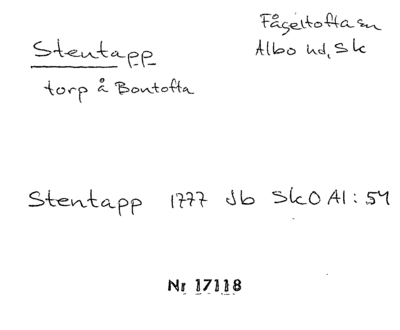 Stentapp
Fågeltofta sn
Albo hd, Sk
torp å Bontofta
Stentapp 1777 Jb SkO Al: 54
Nr 17118